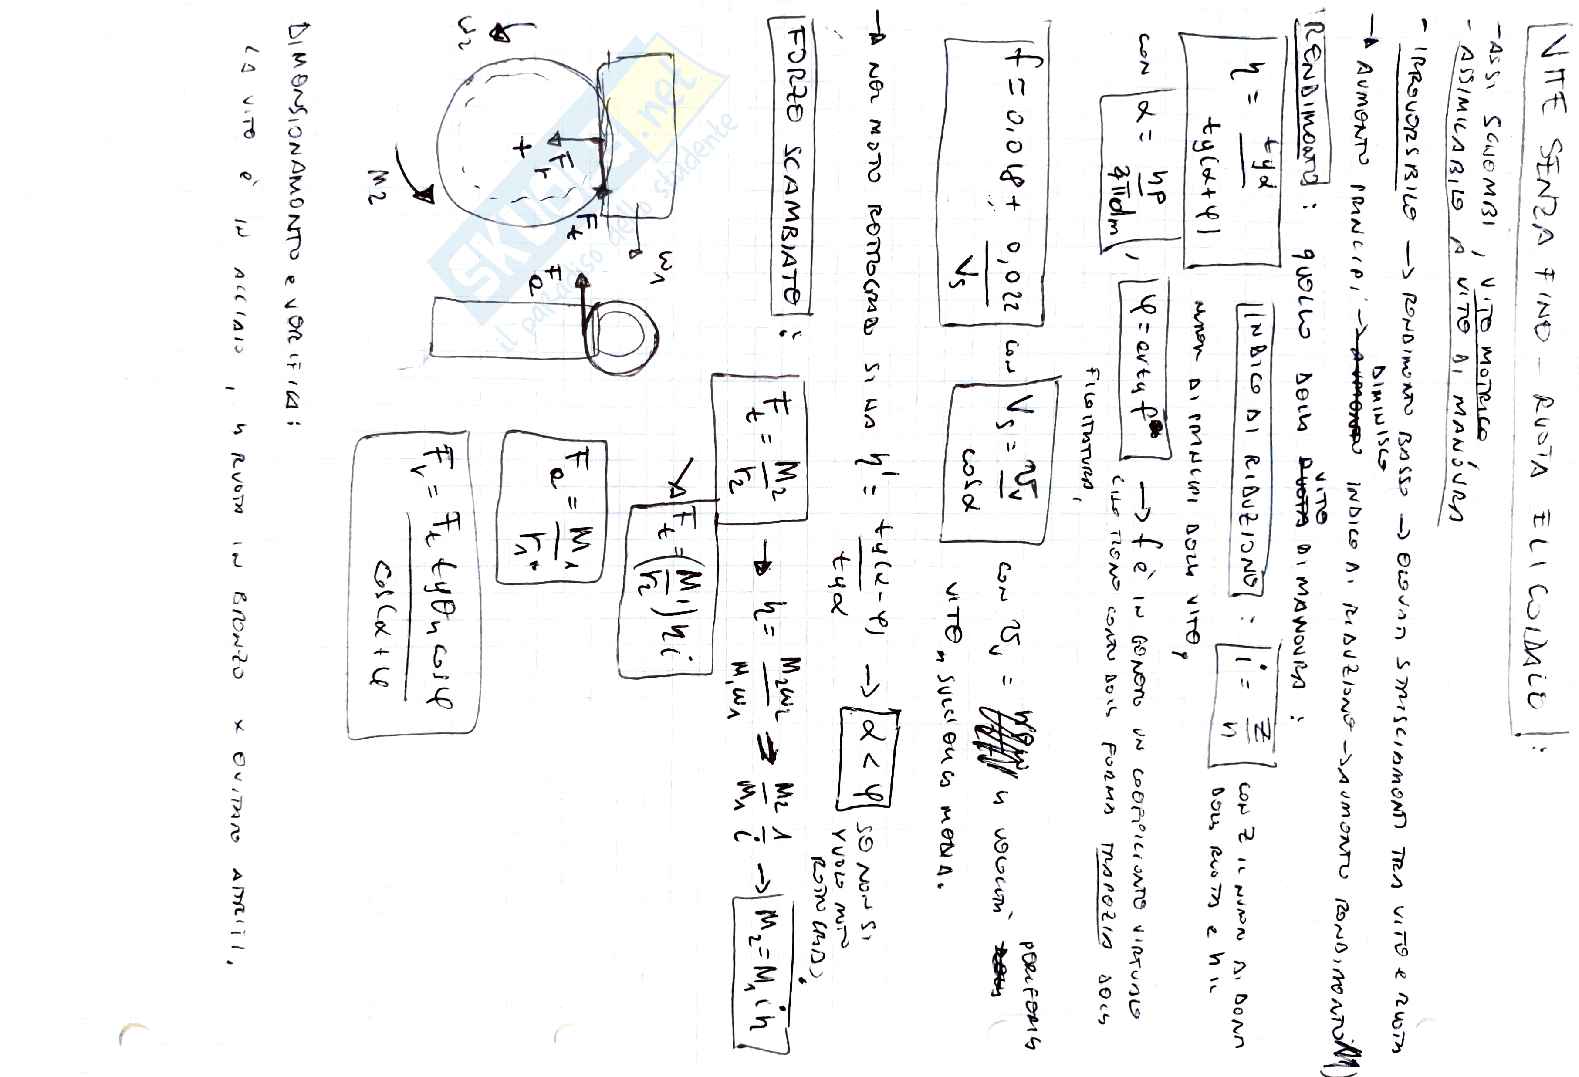 VITE SENZA FINE - RUOTA ELICOIDALE:
- ASSI SGHEMBI, VITE MOTRICE
- ASSIMILABILE A VITE DI MANOVRA
- IRREVERSIBILE → RENDIMENTO BASSO → ELEVATI STRISCIAMENTI TRA VITE E RUOTA
→ AUMENTO PRINCIPI → DIMINISCE INDICE DI RIDUZIONE → AUMENTO RENDIMENTO
RENDIMENTO: QUELLO DELLA VITE DI MANOVRA:
η = tgα / tg(α+φ)
INDICE DI RIDUZIONE: i = Z/n CON Z IL NUMERO DI DENTI DELLA RUOTA E n IL
NUMERO DI PRINCIPI DELLA VITE,
CON α = np / 2πdm, φ = arctg f → f È IN GENERE UN COEFFICIENTE VIRTUALE
CHE TIENE CONTO DELLA FORMA TRAPEZIA DELLA
FILETTATURA,
f = 0,018 + 0,022 / Vs CON Vs = vv / cosα CON vv = LA VELOCITÀ PERIFERICA
VITE SULL'ELICA MEDIA.
→ NEL MOTO RETROGRADO SI HA η' = tg(α-φ) / tgα → α < φ SE NON SI
VUOLE MOTO
RETROGRADO;
FORZE SCAMBIATE:
Ft = M2 / r2 → η = M2ω2 / M1ω1 → M2/M1 1/i → M2 = M1 i η
Ft = (M1/r2) η i
ω1
Ft
Fr
ω2
M2
Fa
Fa = M1 / r1
Fr = Ft tgθn cosφ / cos(α+φ
DIMENSIONAMENTO E VERIFICA:
LA VITE È IN ACCIAIO, LA RUOTA IN BRONZO X EVITARE ATTRITI.
SKUOLA.net
il paradiso dello studente